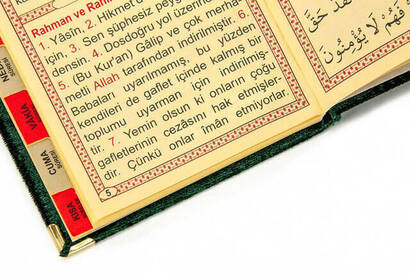 Rahman ve Rah
1. Yâsîn, 2. Hikmet d
için, 3. Sen şüphesiz peyg
densin. 4. Dosdoğru yol üzerin
5. (Bu Kur'an) Gâlip ve çok merha
metli Allah tarafından indirilmiştir. 6.
Babaları uyarılmamış, bu yüzden
kendileri de gaflet içinde kalmış bir
toplumu uyarman için indirilmiş-
tir. 7. Yemin olsun ki onların çoğu
gafletlerinin cezasını hak etmişler-
dir. Çünkü onlar îmân etmiyorlar.
5
VÂKIA
SÛRESİ
CUMA
SÛRESİ
KISA
فَهُمْ لَا يُؤْمِنُونَ